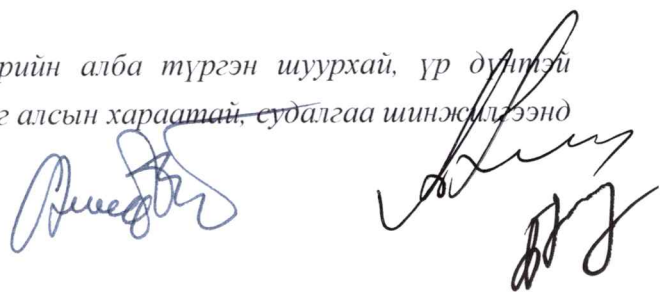 рийн алба түргэн шуурхай, үр дүнтэй
г алсын хараатай, судалгаа шинжилгээнд